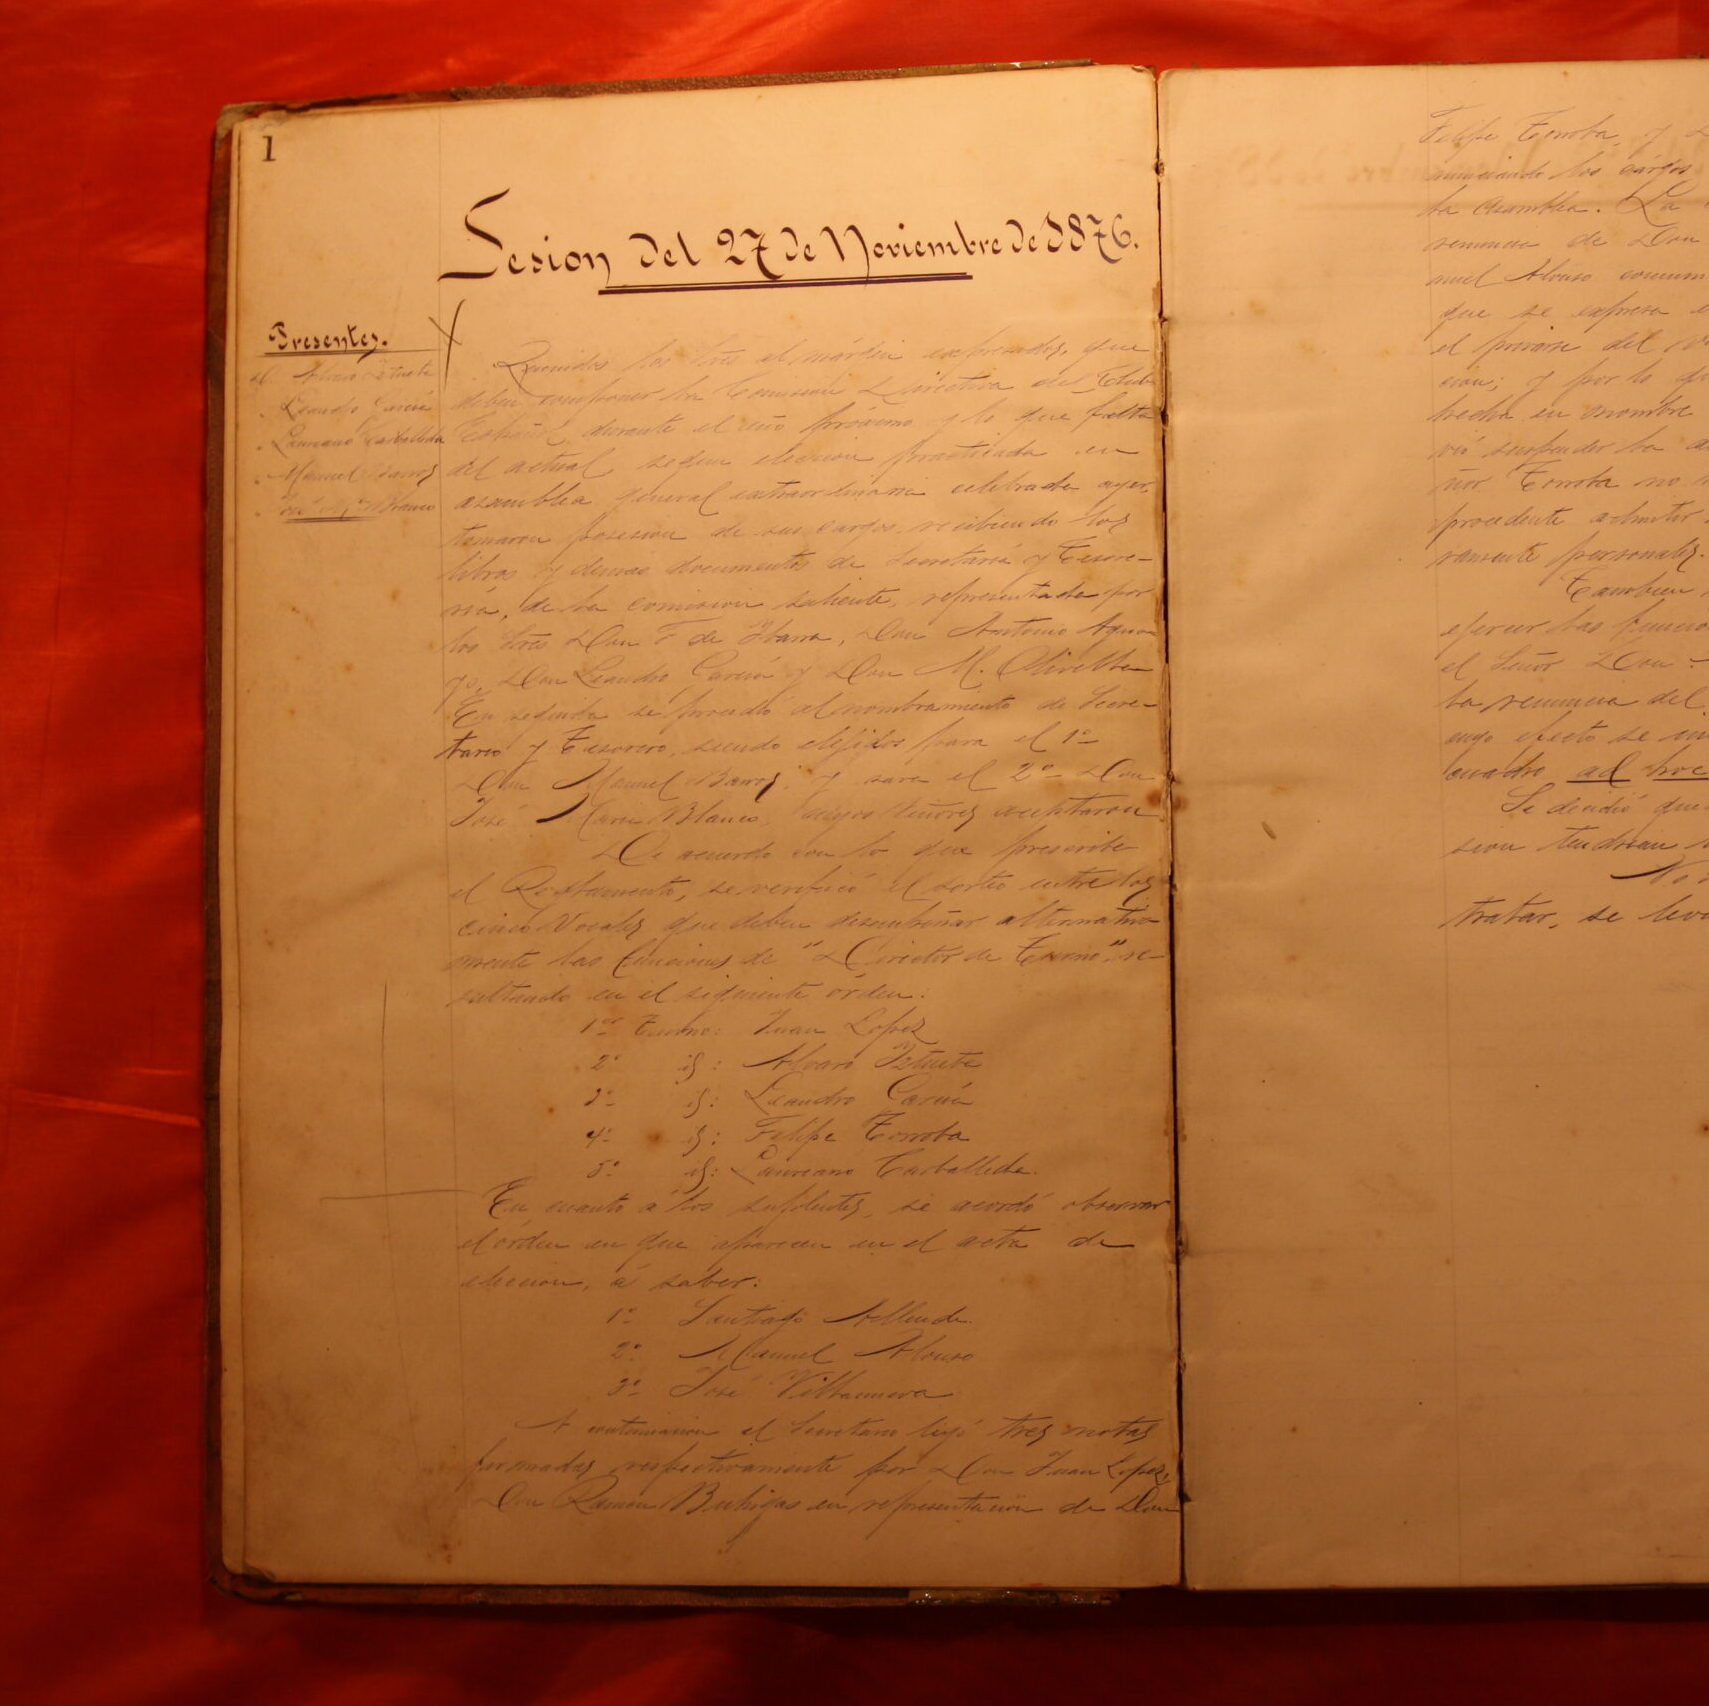 1
Sesion del 27 de Noviembre de 1876.
Presentes.
Leandro García
Laureano Carballeda
Manuel Barros
José Mª Blanco
Reunidos los Sres al márgen expresados, que
deben componer la Comision Directiva del Club
Español, durante el año próximo y lo que falta
del actual, segun eleccion practicada en
asamblea general extraordinaria celebrada ayer,
tomaron posesion de sus cargos recibiendo los
libros y demas documentos de Secretaría y Tesore-
ría, de la comision saliente, representada por
los Sres Don F de Ibarra, Don Antonio
Don Leandro García y Don M.
En seguida se procedió al nombramiento de Secre-
tario y Tesorero, siendo elejidos para el 1º
Don Manuel Barros, y para el 2º Don
José Maria Blanco, cuyos señores aceptaron
De acuerdo con lo que prescribe
el Reglamento, se verificó el sorteo entre los
cinco Vocales que deben desempeñar alternativa-
mente las funciones de "Director de Turno", re-
sultando en el siguiente órden:
1er Turno: Juan Lopez
2º id: Alvaro
3º id: Leandro García
4º id: Felipe Torroba
5º id: Laureano Carballeda
En cuanto á los suplentes, se acordó observar
el órden en que aparecen en el acta de
eleccion, á saber:
1º Santiago Allende
2º Manuel Alonso
3º José Villanueva
A continuacion el Secretario leyó tres notas
firmadas respectivamente por Don Juan Lopez,
Don Ramon Buhigas en representacion de Don
Felipe Torroba, y
renunciando los cárgos
la Asamblea. La
renuncia de Don
nuel Alonso
que se expresa
el privarse del
cion; y por lo
hecha en nombre
vió suspender la
ñor Torroba no
procedente admitir
ramente personales.
Tambien
ejercer las
el Señor Don
la renuncia del
cuyo efecto se
cuadro ad hoc
Se decidió que
sion tendrian
tratar, se